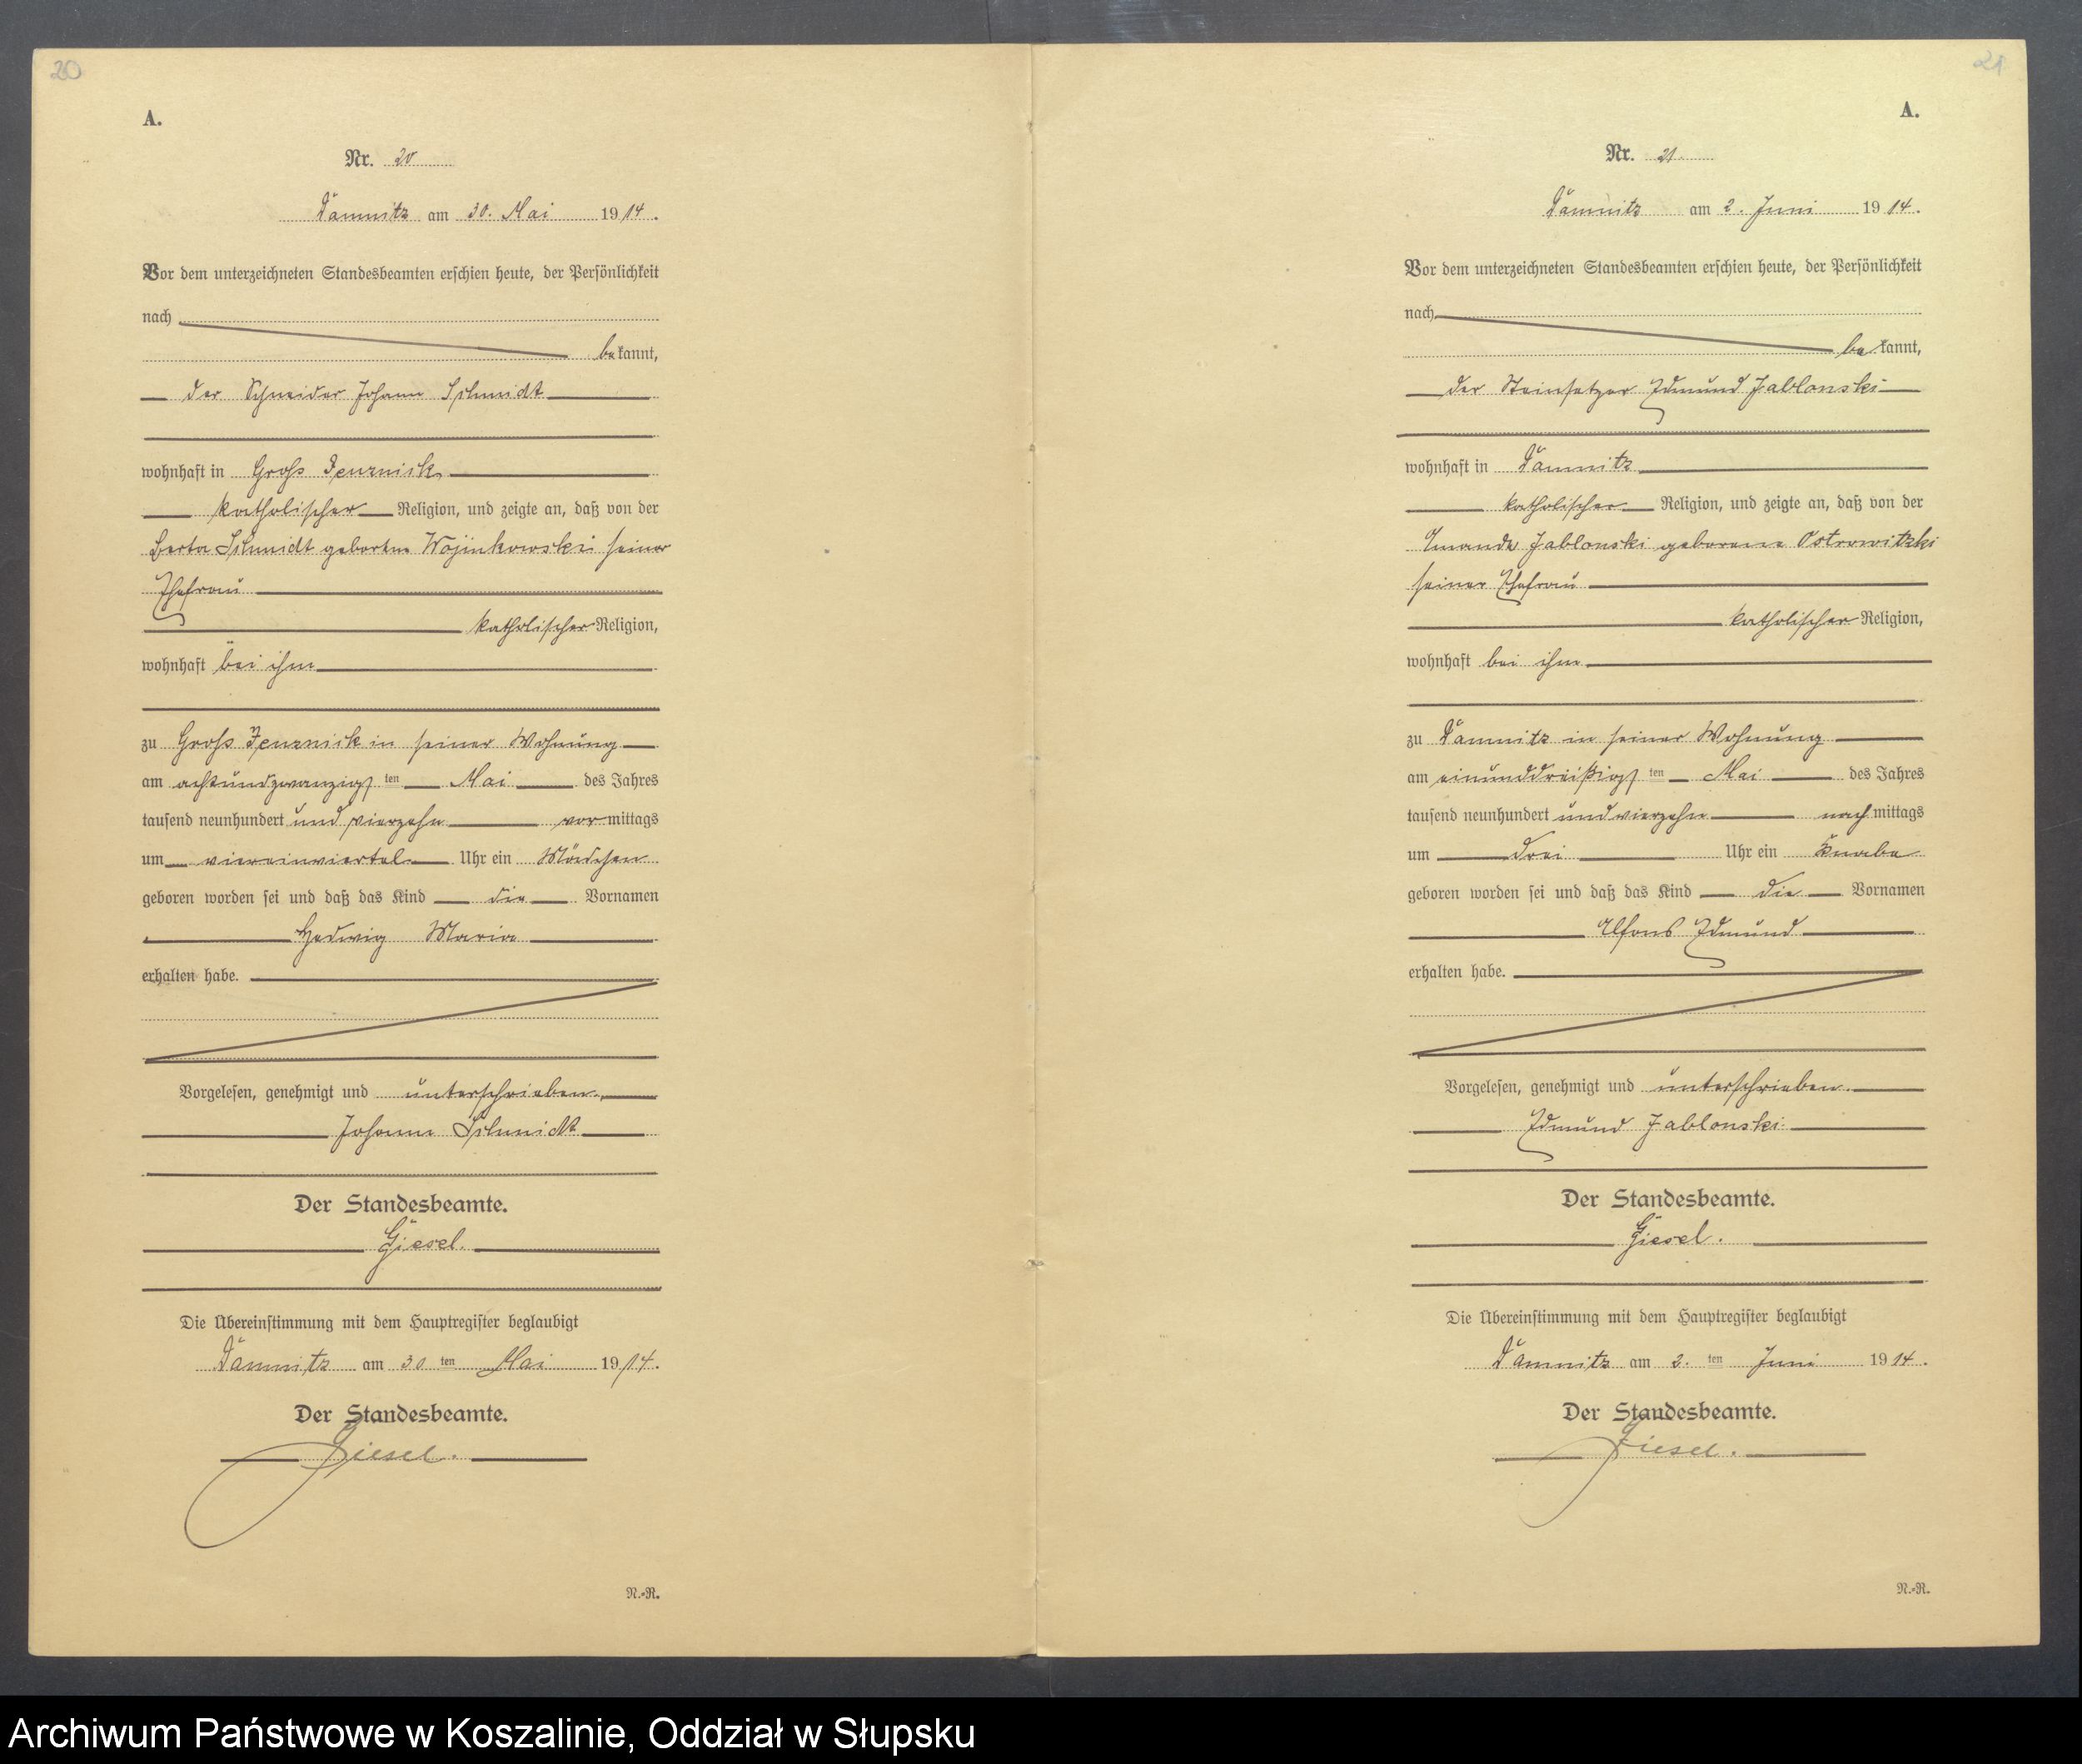 20
A.
Nr. 20
Damnitz am 30. Mai 1914.
Vor dem unterzeichneten Standesbeamten erschien heute, der Persönlichkeit
nach
bekannt,
der Schneider Johann Schmidt
wohnhaft in Groß Jenznick
katholischer Religion, und zeigte an, daß von der
Berta Schmidt geborene seiner
Ehefrau
katholischer Religion,
wohnhaft bei ihm
zu Groß Jenznick in seiner Wohnung
am achtundzwanzigsten Mai des Jahres
tausend neunhundert und vierzehn vormittags
um viereinviertel Uhr ein Mädchen
geboren worden sei und daß das Kind die Vornamen
Hedwig Maria
erhalten habe.
Vorgelesen, genehmigt und unterschrieben.
Johann Schmidt
Der Standesbeamte.
Giesel.
Die Übereinstimmung mit dem Hauptregister beglaubigt
Damnitz am 30ten Mai 1914.
Der Standesbeamte.
Giesel.
N.=R.
21
A.
Nr. 21.
Damnitz am 2. Juni 1914.
Vor dem unterzeichneten Standesbeamten erschien heute, der Persönlichkeit
nach
bekannt,
der Steinsetzer Edmund Jablonski
wohnhaft in Damnitz
katholischer Religion, und zeigte an, daß von der
Amanda Jablonski geborene Ostrowitzki
seiner Ehefrau
katholischer Religion,
wohnhaft bei ihm
zu Damnitz in seiner Wohnung
am einunddreißigsten Mai des Jahres
tausend neunhundert und vierzehn nachmittags
um drei Uhr ein Knabe
geboren worden sei und daß das Kind die Vornamen
Alfons Edmund
erhalten habe.
Vorgelesen, genehmigt und unterschrieben.
Edmund Jablonski
Der Standesbeamte.
Giesel.
Die Übereinstimmung mit dem Hauptregister beglaubigt
Damnitz am 2.ten Juni 1914.
Der Standesbeamte.
Giesel.
N.=R.
Archiwum Państwowe w Koszalinie, Oddział w Słupsku